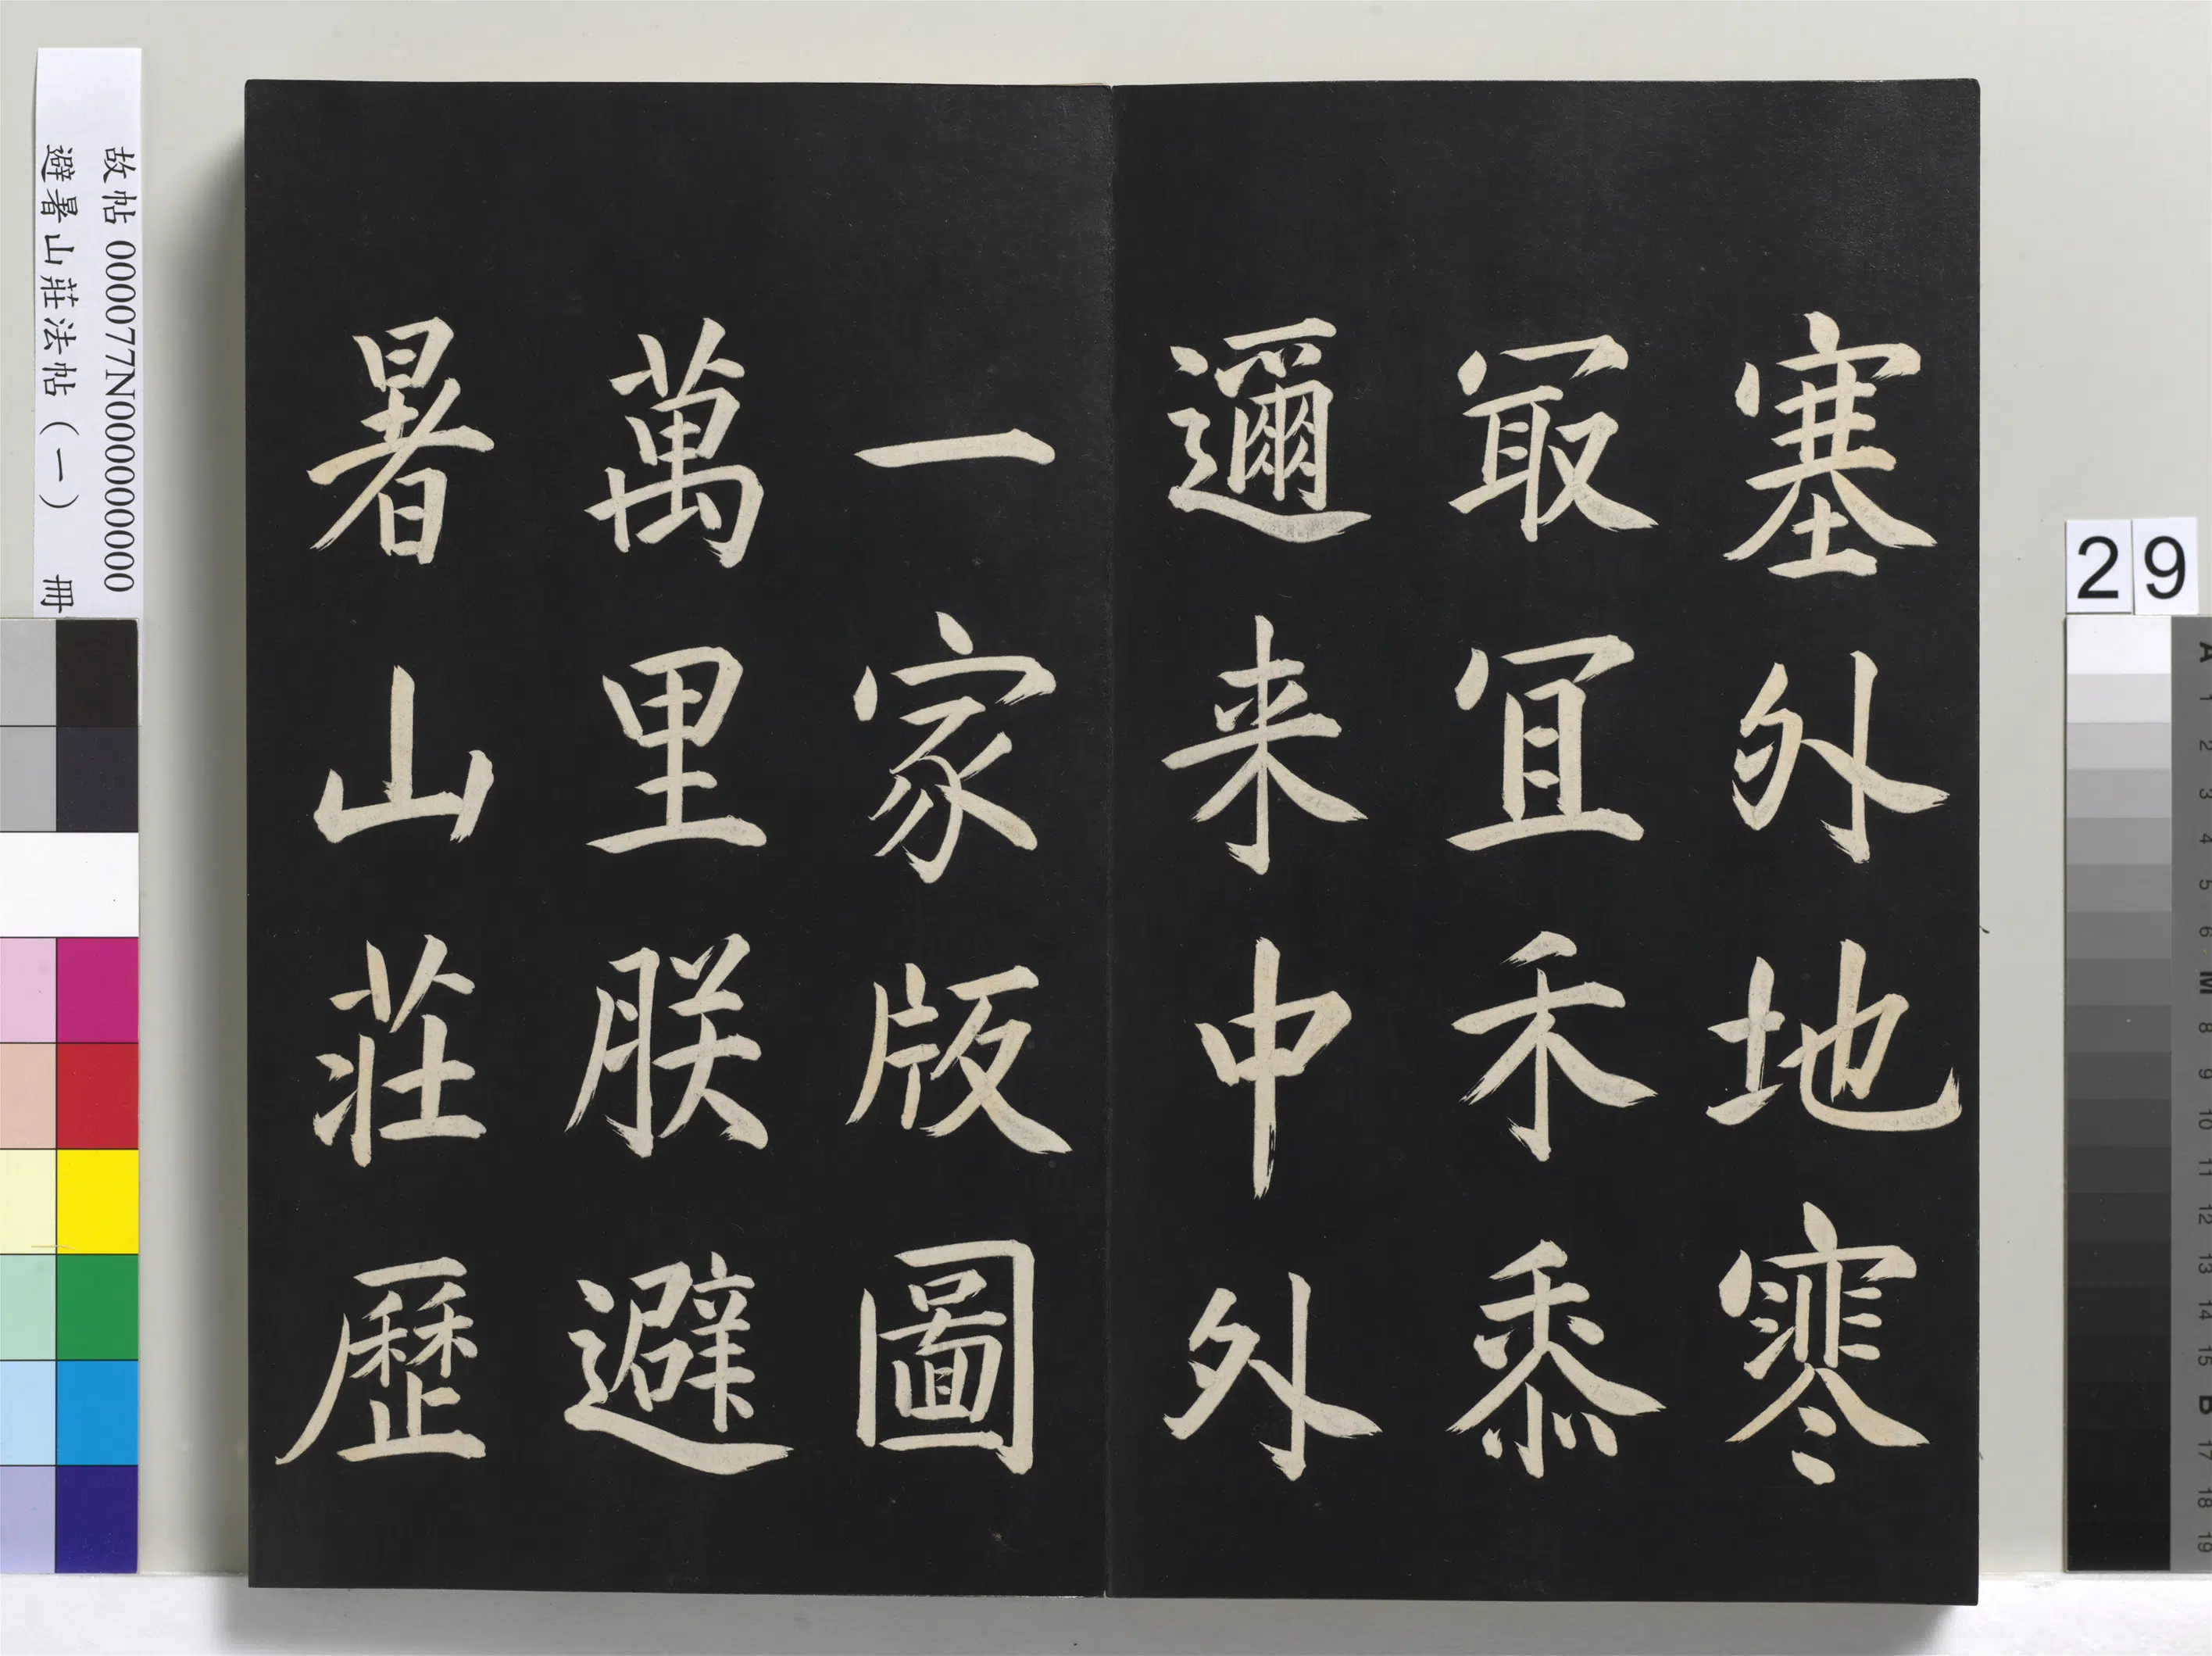 塞外地寒
冣冝禾黍
邇来中外
一家版圖
萬里朕避
暑山莊歷
故帖 000077N000000000
避暑山莊法帖（一） 冊
29
A 1 2 3 4 5 6 M 8 9 10 11 12 13 14 15 B 17 18 19